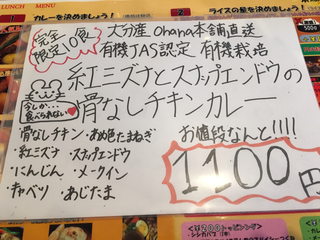 LUNCH MENU
カレーを決めましょう!
ライスの量を決め
完全
限定10食
大分産 Ohana本舗直送
有機JAS認定 有機栽培
紅ミズナとスナップエンドウの
骨なしチキンカレー
今しか…
食べられない
お値段なんと!!!!
1100円
骨なしチキン・あめ色たまねぎ
・紅ミズナ ・スナップエンドウ
・にんじん ・メークイン
・キャベツ ・あじたま